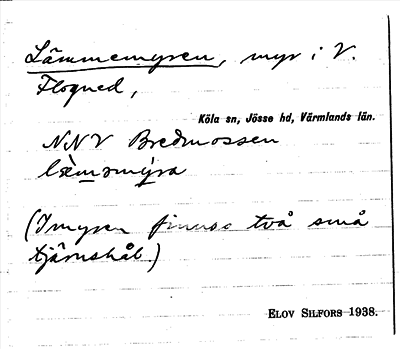 Lämmemyren, myr i V.
Flogned,
Köla sn, Jösse hd, Värmlands län.
NNV Bredmossen
(I myren finnas två små
tjärnshål.)
ELOV SILFORS 1938.